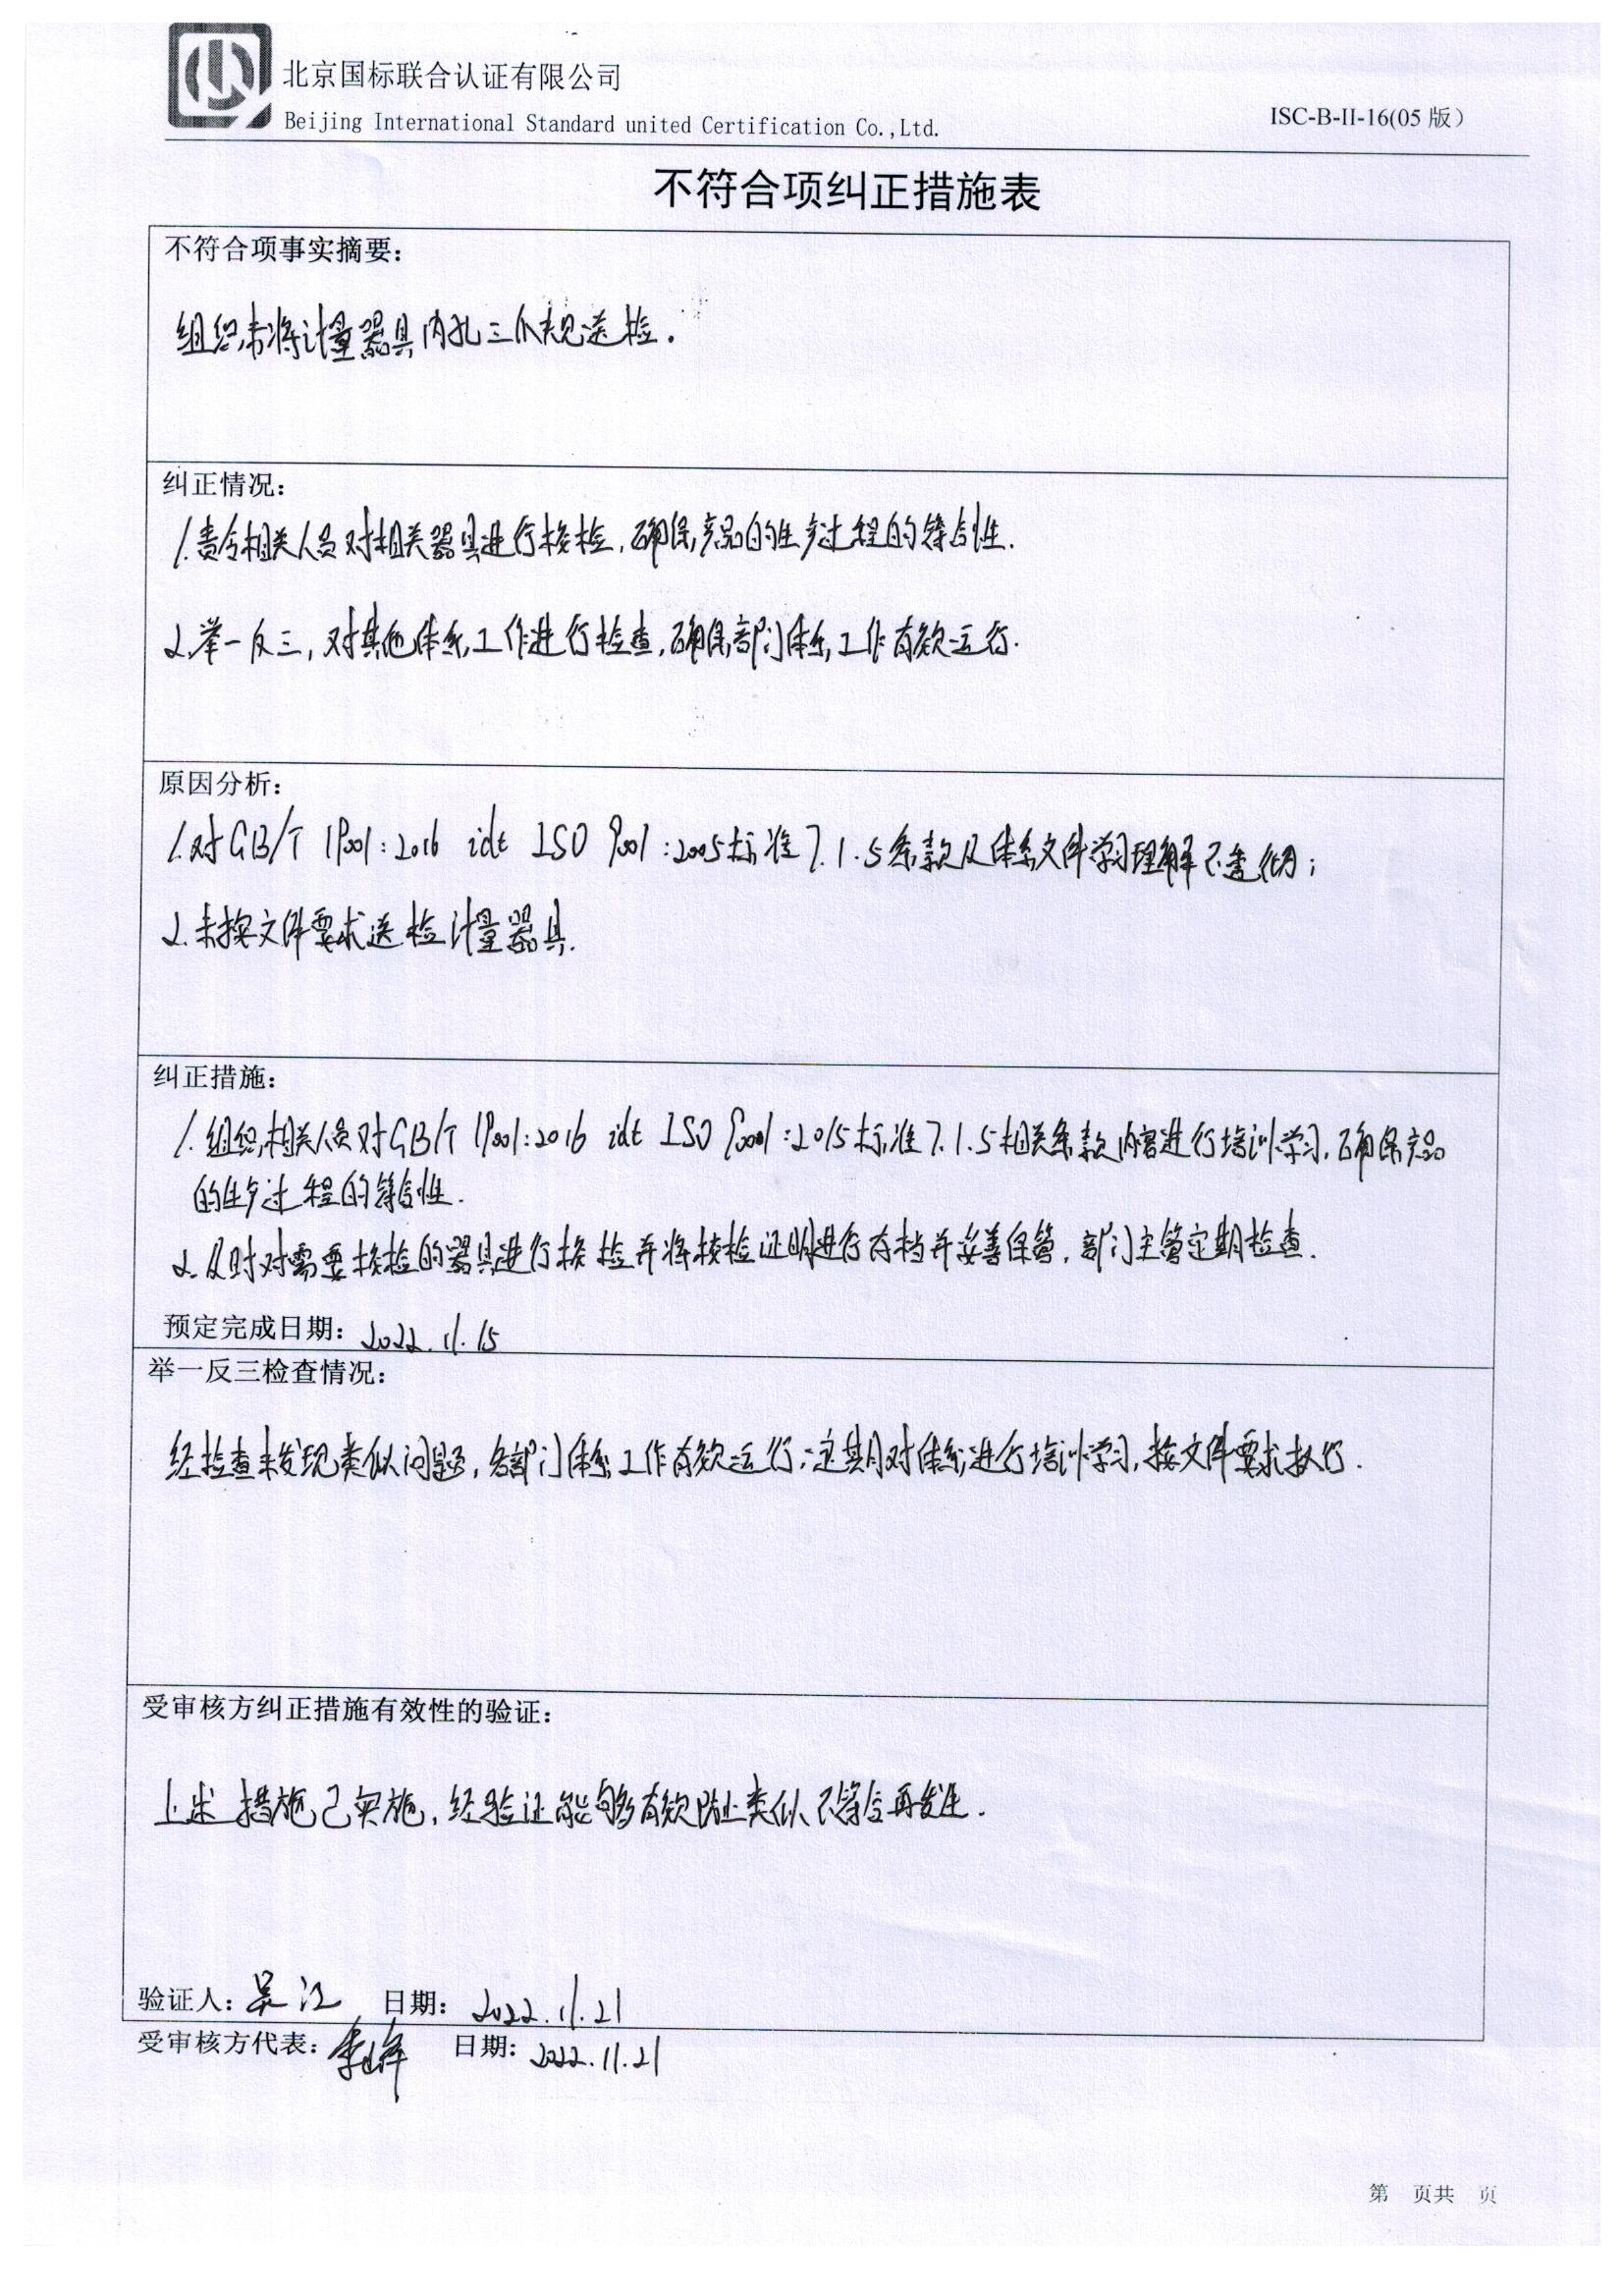 北京国标联合认证有限公司
Beijing International Standard united Certification Co.,Ltd.
ISC-B-II-16(05 版)
不符合项纠正措施表
不符合项事实摘要:
组织未将计量器具内孔三爪规送检.
纠正情况:
1.责令相关人员对相关器具进行校检,确保产品的生产过程的符合性.
2.举一反三,对其他体系工作进行检查,确保部门体系工作有效运行.
原因分析:
1.对GB/T 19001:2016 idt ISO 9001:2005标准7.1.5条款及体系文件学习理解不透彻;
2.未按文件要求送检计量器具.
纠正措施:
1.组织相关人员对GB/T 19001:2016 idt ISO 9001:2015标准7.1.5相关条款内容进行培训学习,确保产品
的生产过程的符合性.
2.及时对需要校检的器具进行校检并将校检证明进行存档并妥善保管,部门主管定期检查.
预定完成日期: 2022.11.15
举一反三检查情况:
经检查未发现类似问题,各部门体系工作有效运行;定期对体系进行培训学习,按文件要求执行.
受审核方纠正措施有效性的验证:
上述措施已实施,经验证能够有效防止类似不符合再发生.
验证人: 吴江 日期: 2022.11.21
受审核方代表: 日期: 2022.11.21
第 页共 页